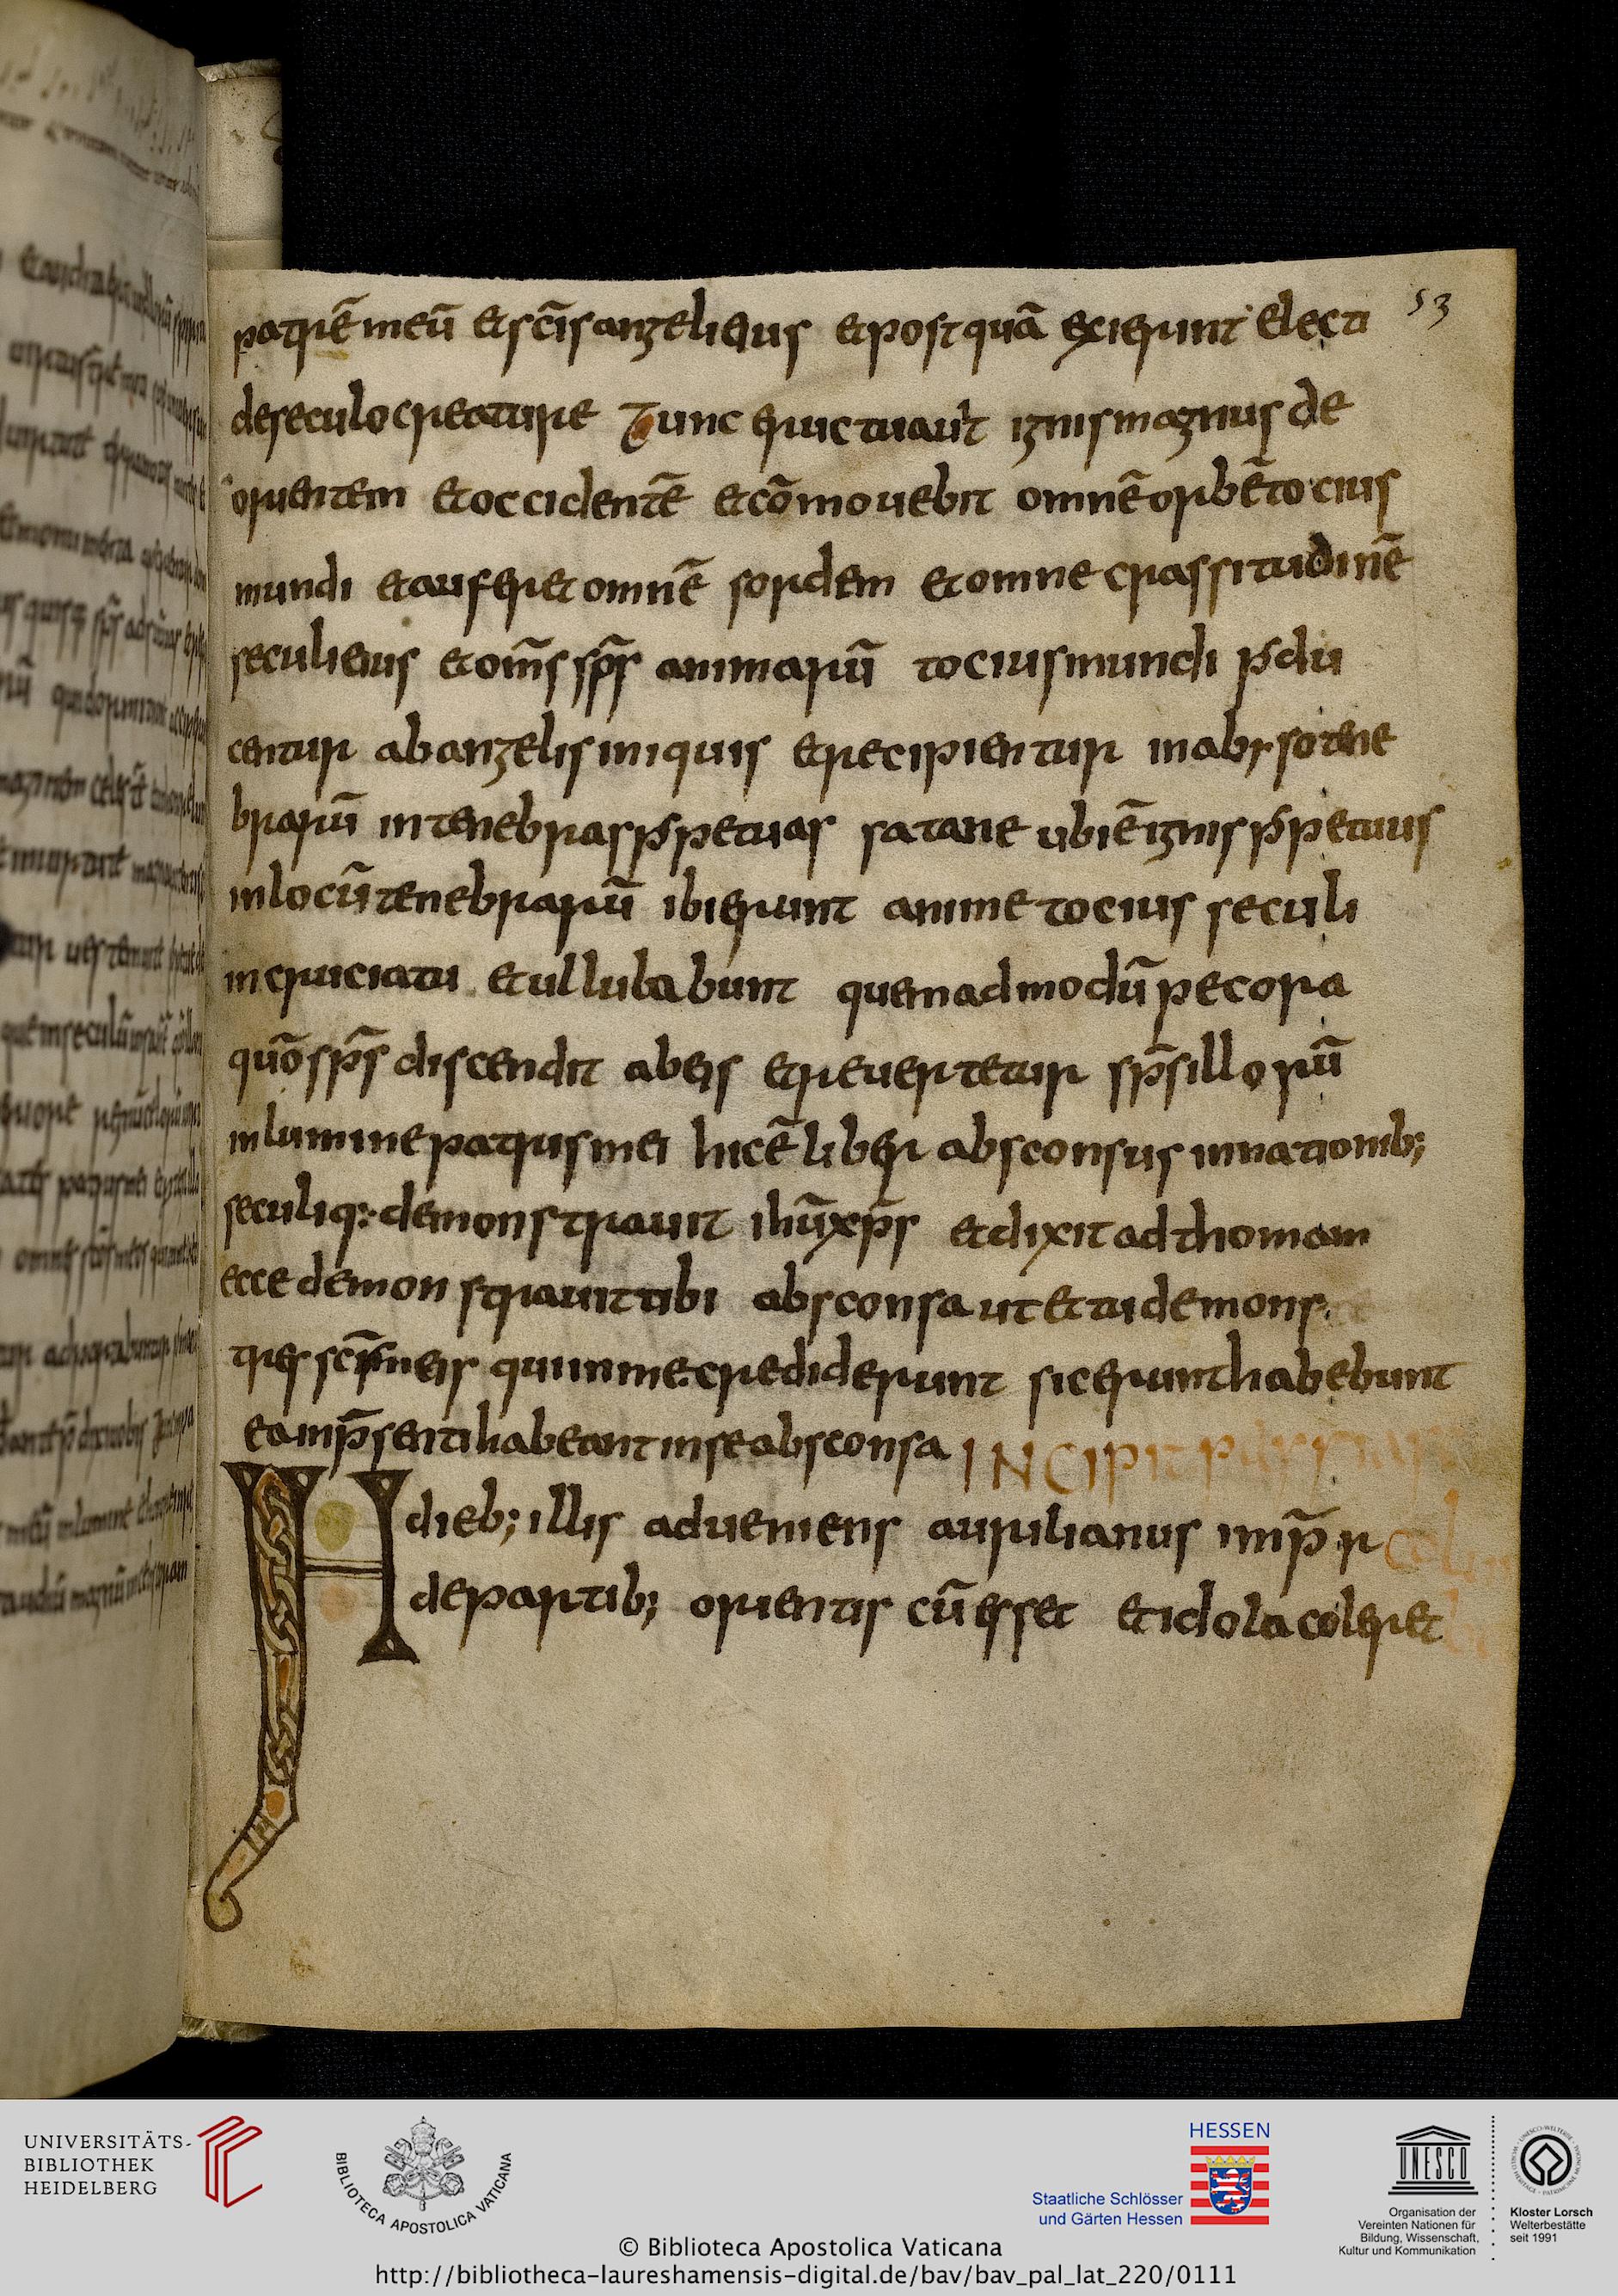 53
patrē meū et scīs angelibus et postquā exierunt electi
de seculo creature Tunc eructuavit ignis magnus de
orientem et occidentē et cōmovebit omnē orbē tocius
mundi et auferet omnē sordem et omne crassitudinē
seculi eius et om̄s sp̄s animarū tocius mundi p̄du
centur ab angelis iniquis et recipientur in abysso tene
brarū in tenebras p̄petuas satane ubi ē ignis p̄petuus
in locū tenebrarū ibi erunt anime tocius seculi
in cruciatu et ullulabunt quemadmodū pecora
quō sp̄s discendit ab eis et revertetur sp̄s illorū
in lumine patris mei hic ē liber absconsus in nationib;
seculi q: demonstravit ihū xp̄s et dixit ad thomam
ecce demonstravit tibi absconsa ut et tu demons
tres sc̄is meis qui in me crediderunt sic erunt habebunt
ea in p̄senti habeant in se absconsa INCIPIT
dieb; illis adveniens aurilianus imp̄r
de partib; orientis cū esset et idola coleret
UNIVERSITÄTS-
BIBLIOTHEK
HEIDELBERG
BIBLIOTECA APOSTOLICA VATICANA
HESSEN
Staatliche Schlösser
und Gärten Hessen
UNESCO
Organisation der
Vereinten Nationen für
Bildung, Wissenschaft,
Kultur und Kommunikation
Kloster Lorsch
Welterbestätte
seit 1991
© Biblioteca Apostolica Vaticana
http://bibliotheca-laureshamensis-digital.de/bav/bav_pal_lat_220/0111